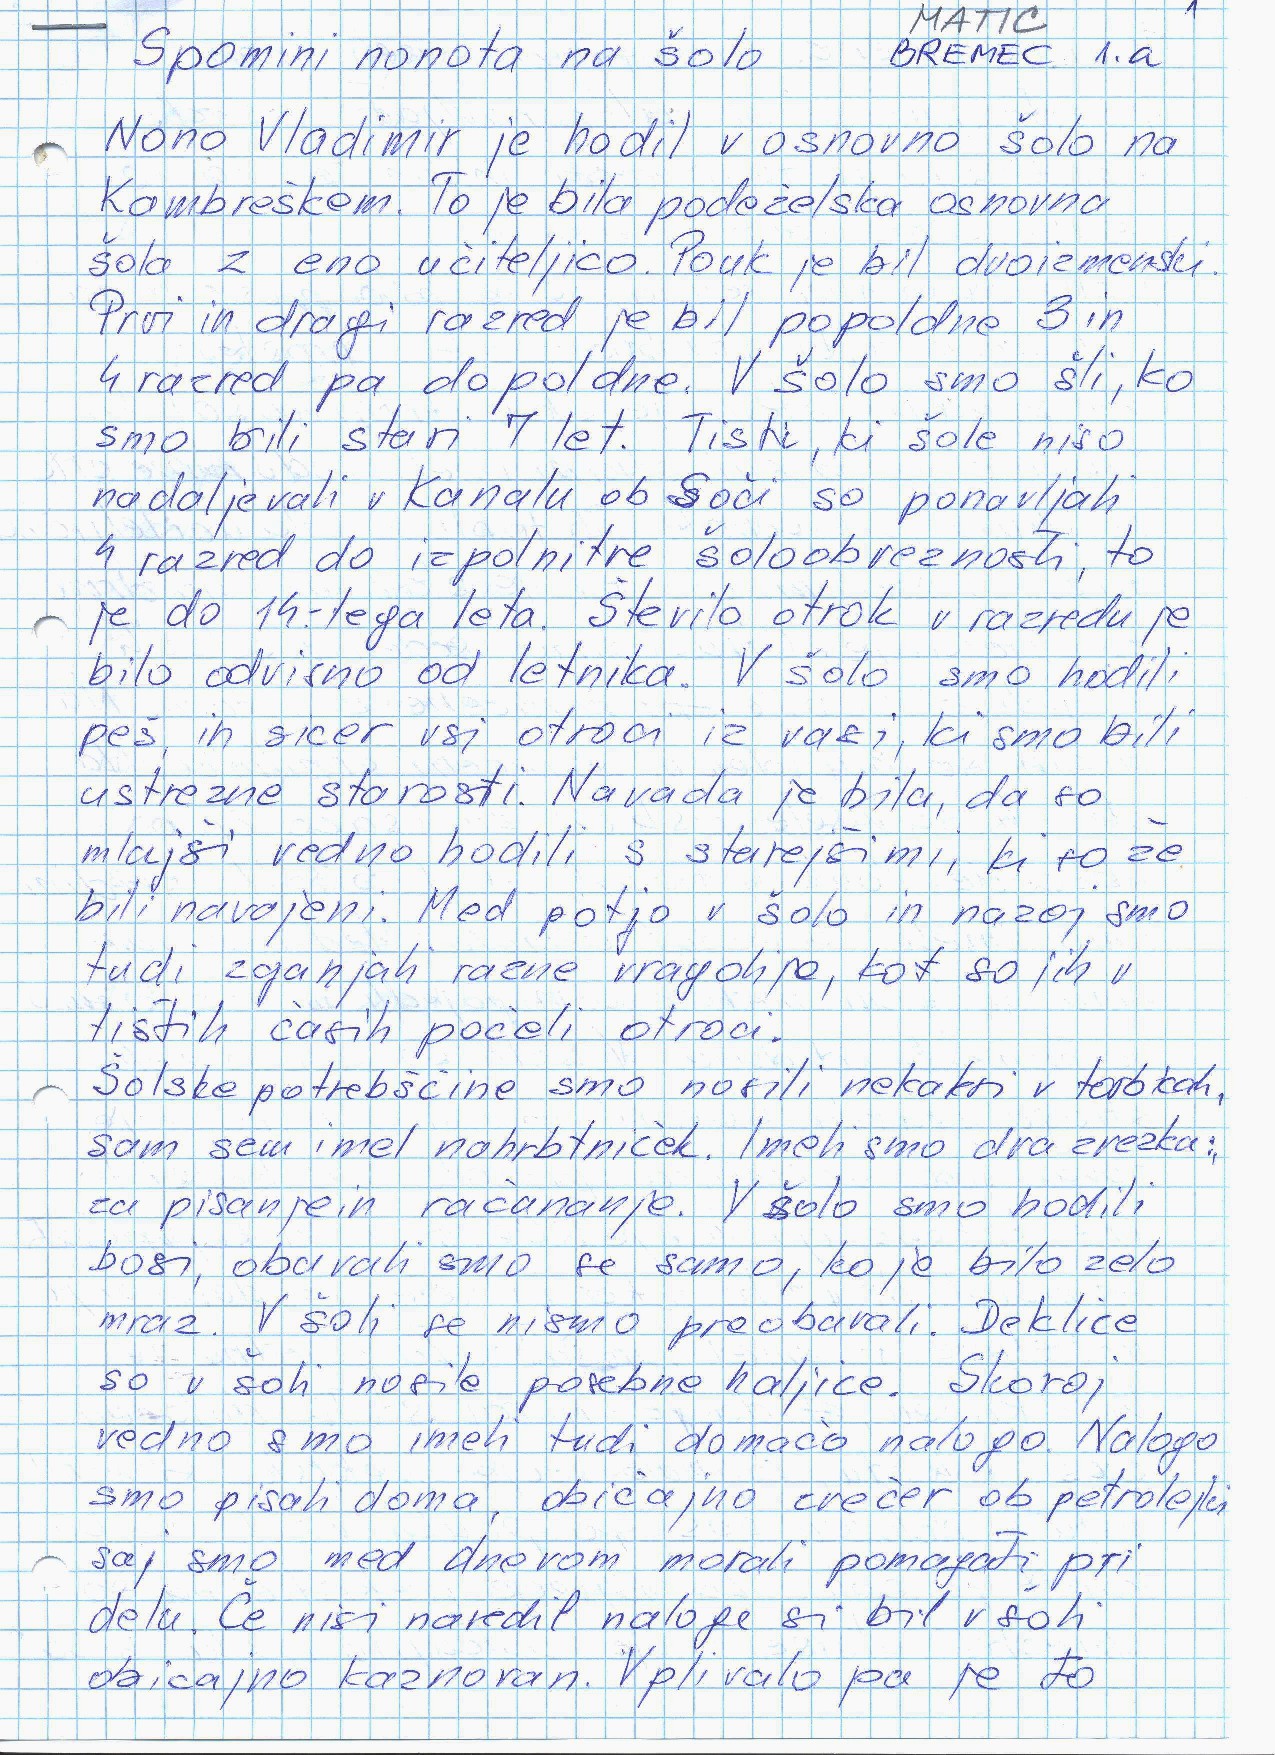 MATIC 1
Spomini nonota na šolo BREMEC 1.a
Nono Vladimir je hodil v osnovno šolo na
Kambreškem. To je bila podeželska osnovna
šola z eno učiteljico. Pouk je bil dvoizmenski.
Prvi in drugi razred je bil popoldne 3 in
4 razred pa dopoldne. V šolo smo šli, ko
smo bili stari 7 let. Tisti, ki šole niso
nadaljevali v Kanalu ob Soči so ponavljali
4 razred do izpolnitre šoloobreznosti, to
je do 14.-tega leta. Število otrok v razredu je
bilo odvisno od letnika. V šolo smo hodili
peš, in sicer vsi otroci iz vasi, ki smo bili
ustrezne starosti. Navada je bila, da so
mlajši vedno hodili s starejšimi, ki so že
bili navajeni. Med potjo v šolo in nazaj smo
tudi zganjali razne vragolije, kot so jih v
tistih časih počeli otroci.
Šolske potrebščine smo nosili nekakri v torbicah,
sam sem imel nahrbtniček. Imeli smo dva zvezka:,
za pisanje in računanje. V šolo smo hodili
bosi, obuvali smo se samo, ko je bilo zelo
mraz. V šoli se nismo preobuvali. Deklice
so v šoli nosile posebne haljice. Skoraj
vedno smo imeli tudi domačo nalogo. Nalogo
smo pisali doma, običajno zvečer ob petrolejki
saj smo med dnevom morali pomagati pri
delu. Če nisi naredil naloge si bil v šoli
obicajno kaznovan. Vplivalo pa je to